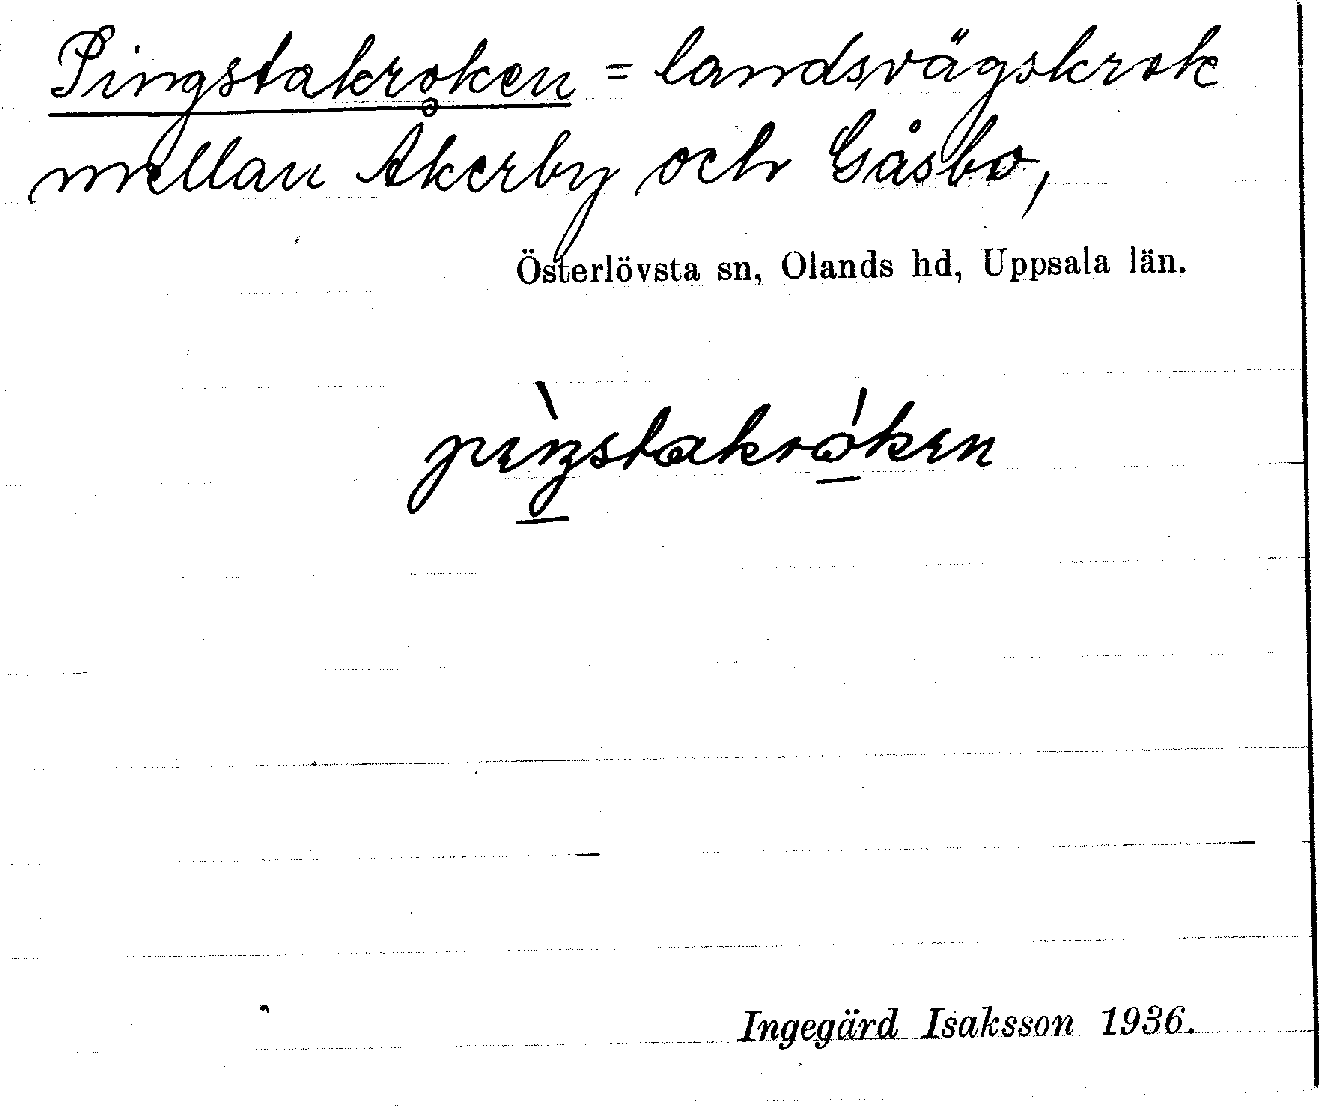 Pingstakroken = landsvägskrok
mellan Åkerby och Gåsbo,
Österlövsta sn, Olands hd, Uppsala län.
Ingegärd Isaksson 1936.